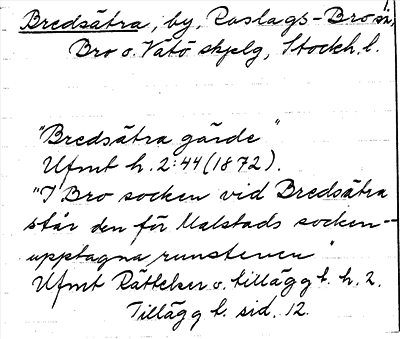 1.
Bredsätra, by, Roslags-Bro sn,
Bro o. Vätö skplg, Stockh. l.
"Bredsätra gärde"
Ufmt h. 2:44 (1872).
"I Bro socken vid Bredsätra
står den för Malstads socken-
upptagna runstenen"
Ufmt Rättelser o. tillägg t. h. 2.
Tillägg t. sid. 12.